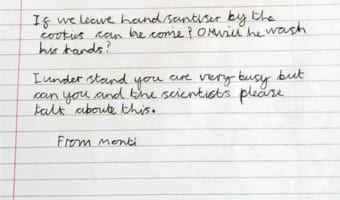 If we leave hand santiser by the
cookies can he come? Or will he wash
his hands?
I under stand you are very busy but
can you and the scientists please
talk about this.
From monti